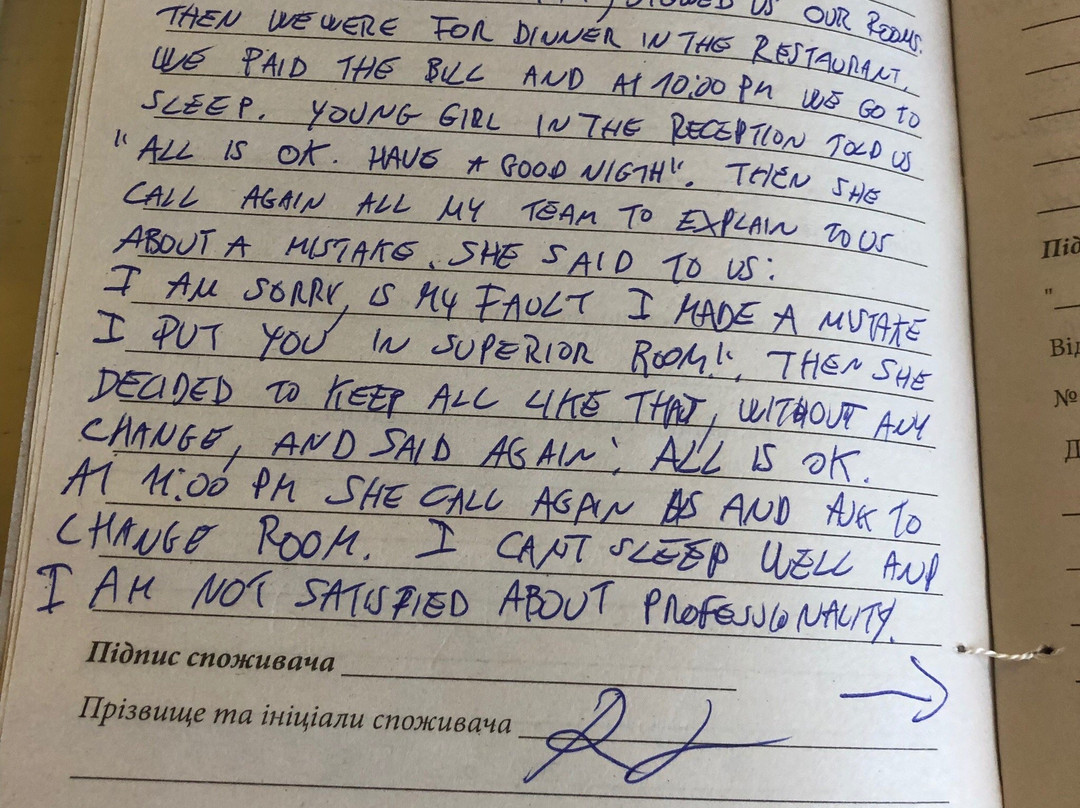 SHOWED US OUR ROOMS.
THEN WE WERE FOR DINNER IN THE RESTAURANT,
WE PAID THE BILL AND AT 10:00 PM WE GO TO
SLEEP. YOUNG GIRL IN THE RECEPTION TOLD US
"ALL IS OK. HAVE A GOOD NIGTH". THEN SHE
CALL AGAIN ALL MY TEAM TO EXPLAIN TO US
ABOUT A MISTAKE. SHE SAID TO US:
I AM SORRY, IS MY FAULT I MADE A MISTAKE
I PUT YOU IN SUPERIOR ROOM!". THEN SHE
DECIDED TO KEEP ALL LIKE THAT, WITHOUT ANY
CHANGE, AND SAID AGAIN: ALL IS OK.
AT 11:00 PM SHE CALL AGAIN US AND ASK TO
CHANGE ROOM. I CANT SLEEP WELL AND
I AM NOT SATISFIED ABOUT PROFESSIONALITY.
Підпис споживача
Прізвище та ініціали споживача
Під
"
Від
№
Д